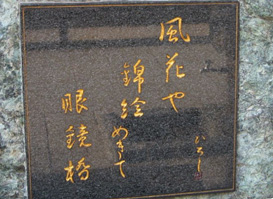 風花や
錦絵めきて
眼鏡橋
ひろし